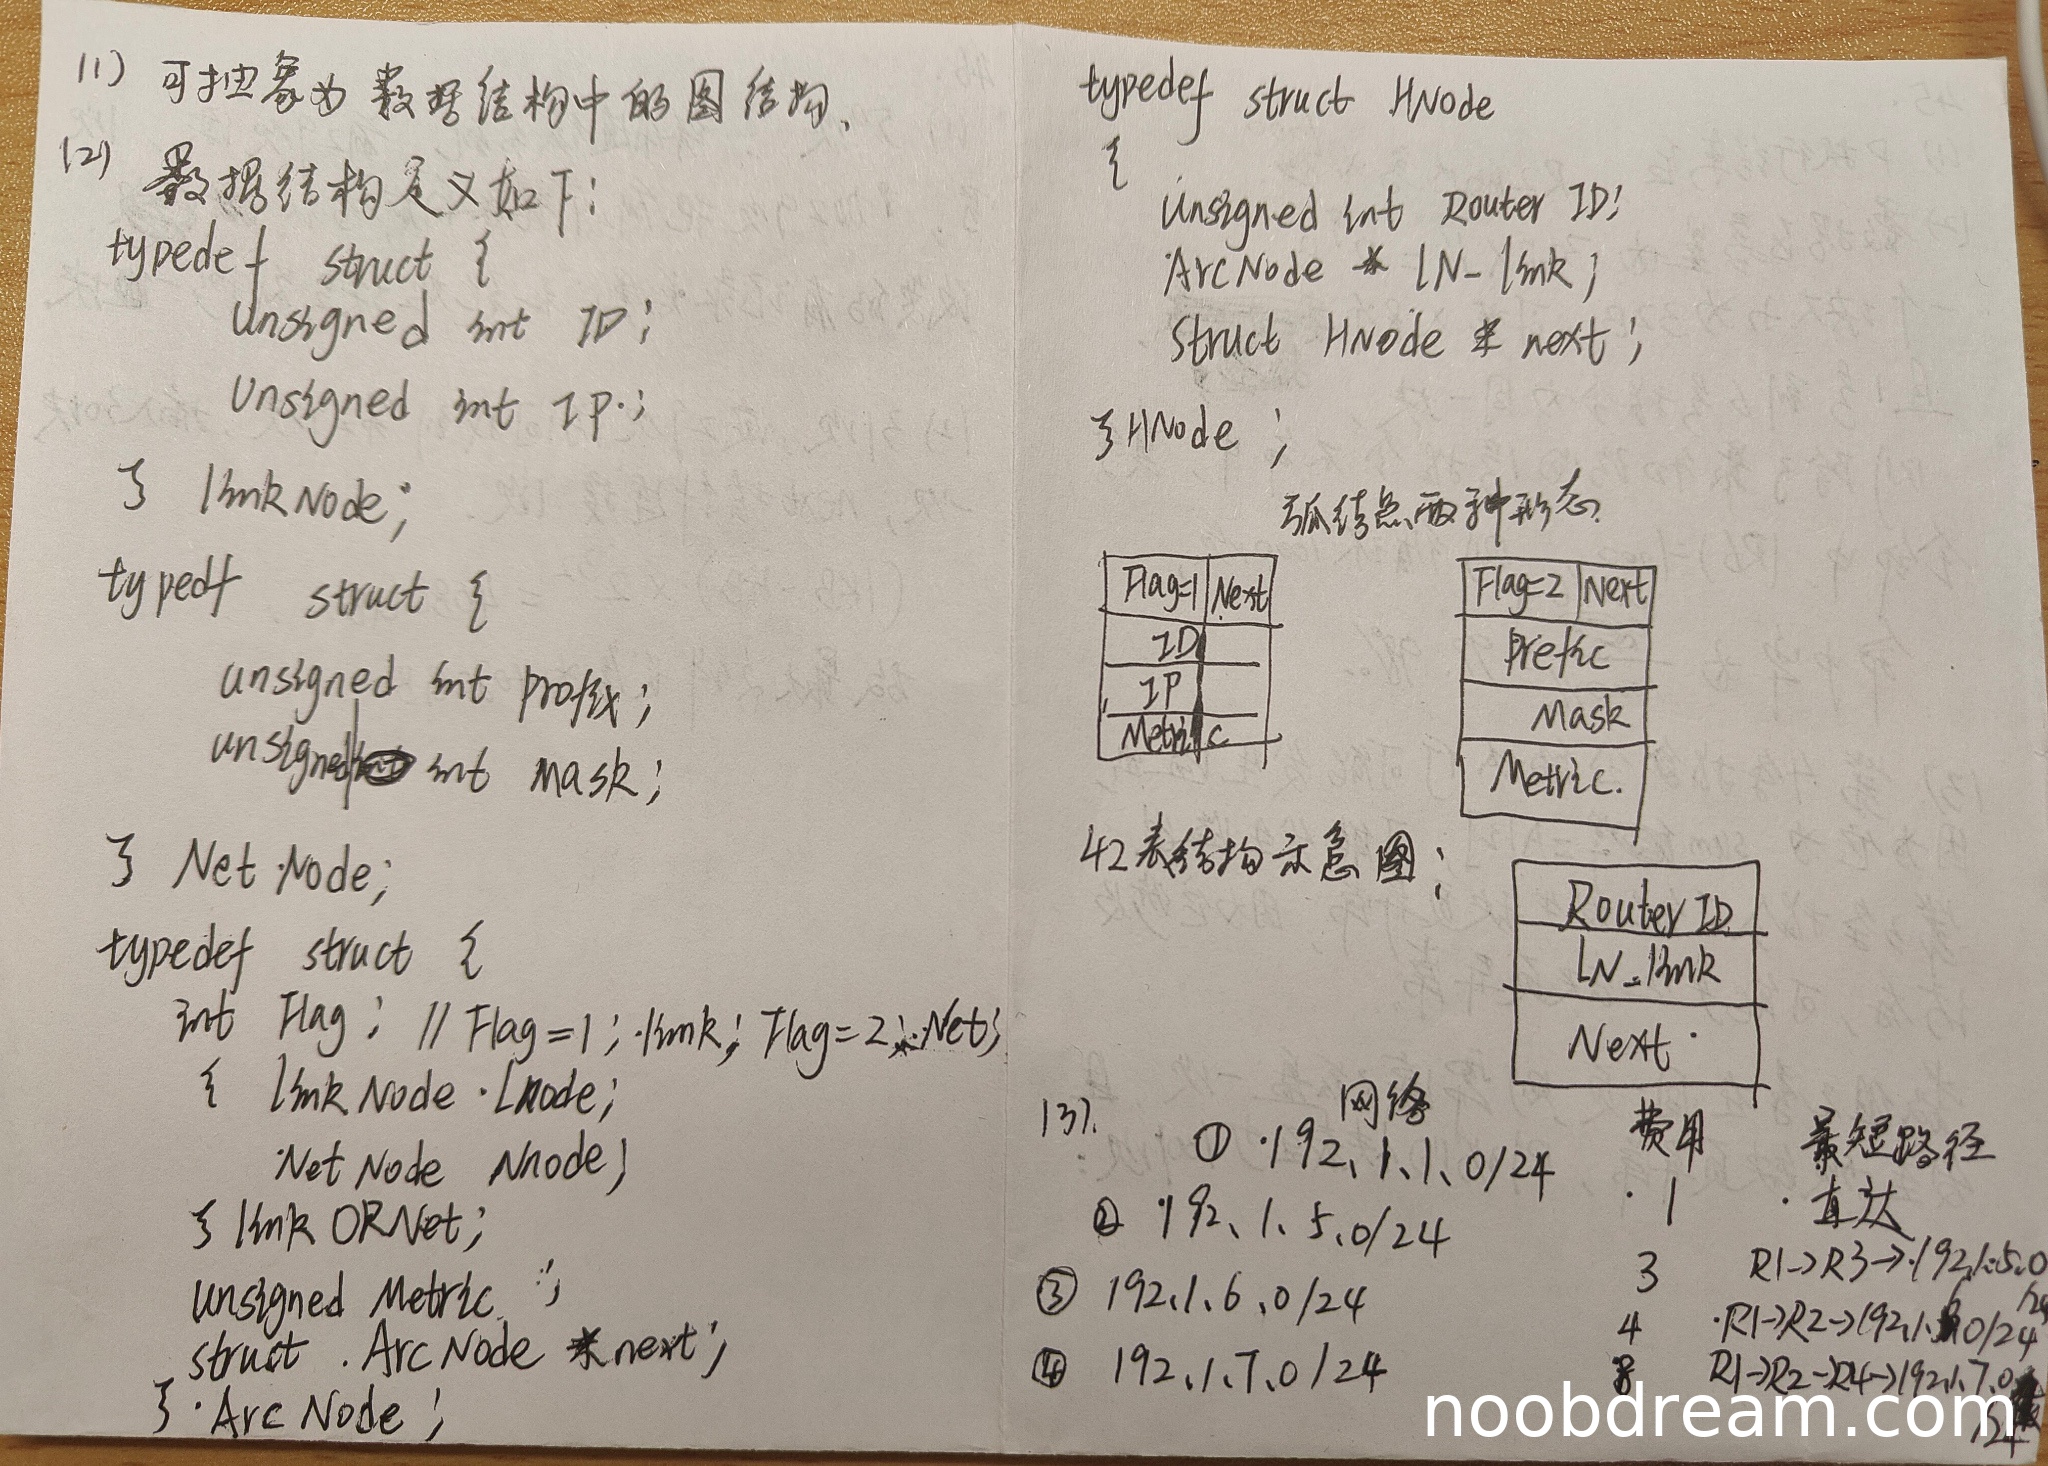 (1) 可抽象为数据结构中的图结构、
(2) 数据结构定义如下:
typedef struct {
unsigned int ID;
unsigned int IP;
} linkNode;
typedf struct {
unsigned int profix;
unsigned int mask;
} Net Node;
typedef struct {
int Flag; // Flag=1; link; Flag=2; Net;
{ link Node Lnode;
Net Node Nnode;
} link ORNet;
unsigned Metric ;
struct ArcNode *next;
} ArcNode;
typedef struct HNode
{
unsigned int Router ID;
ArcNode * LN_link;
struct HNode * next;
} HNode ;
弧结点两种形态.
Flag=1 Next
ID
IP
Metric
Flag=2 Next
Prefic
Mask
Metric.
42表结构示意图:
Router ID
LN_link
Next
(3). 网络 费用 最短路径
① 192.1.1.0/24 1 直达
② 192.1.5.0/24 3 R1->R3->192.1.5.0/24
③ 192.1.6.0/24 4 R1->R2->192.1.6.0/24
④ 192.1.7.0/24 8 R1->R2->R4->192.1.7.0/24
noobdream.com